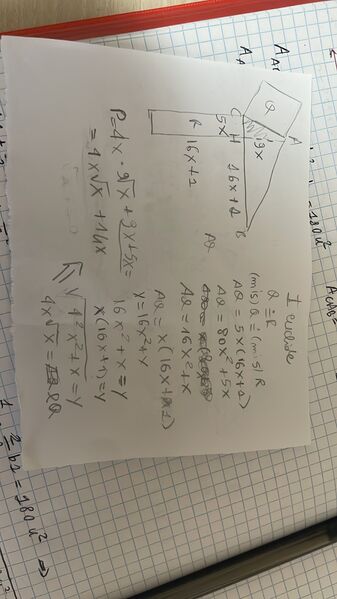 I Euclide
Q ≐ R
(mis) Q ≐ (mis) R
AQ = 5x(16x+1)
AQ = 80x²+5x
AQ = 16x²+x
AQ = x(16x+1)
y = 16x²+x
16x²+x = y
x(16x+1) = y
√4²x²+x = y
4x√x = lQ
A
Q
9x
C
H
16x+1
B
5x
R
16x+1
AQ
P = 4x · 9√x + 9x+5x =
= 4x√x + 14x
180u²
b1 = 180u² ⇒